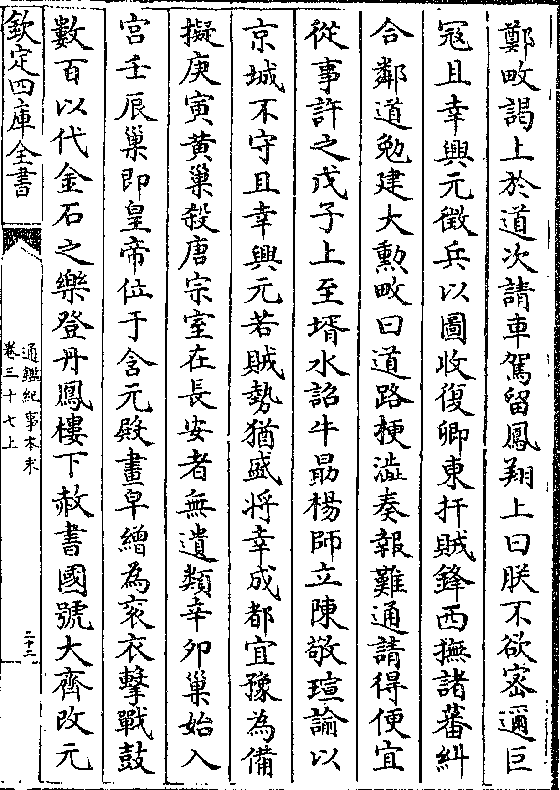 鄭畋謁上於道次請車駕留鳳翔上曰朕不欲密邇巨
冦且幸興元徴兵以圖收復卿東扞賊鋒西撫諸蕃糾
合鄰道勉建大勲畋曰道路梗澁奏報難通請得便宜
從事許之戊子上至壻水詔牛勗楊師立陳敬瑄諭以
京城不守且幸興元若賊勢猶盛将幸成都宜豫為備
擬庚寅黄巢殺唐宗室在長安者無遺類辛卯巢始入
宫壬辰巢即皇帝位于含元殿畫皁繒為衮衣擊戰鼓
數百以代金石之樂登丹鳳樓下赦書國號大齊改元
欽定四庫全書
通鑑紀事本末
卷三十七上
二十二